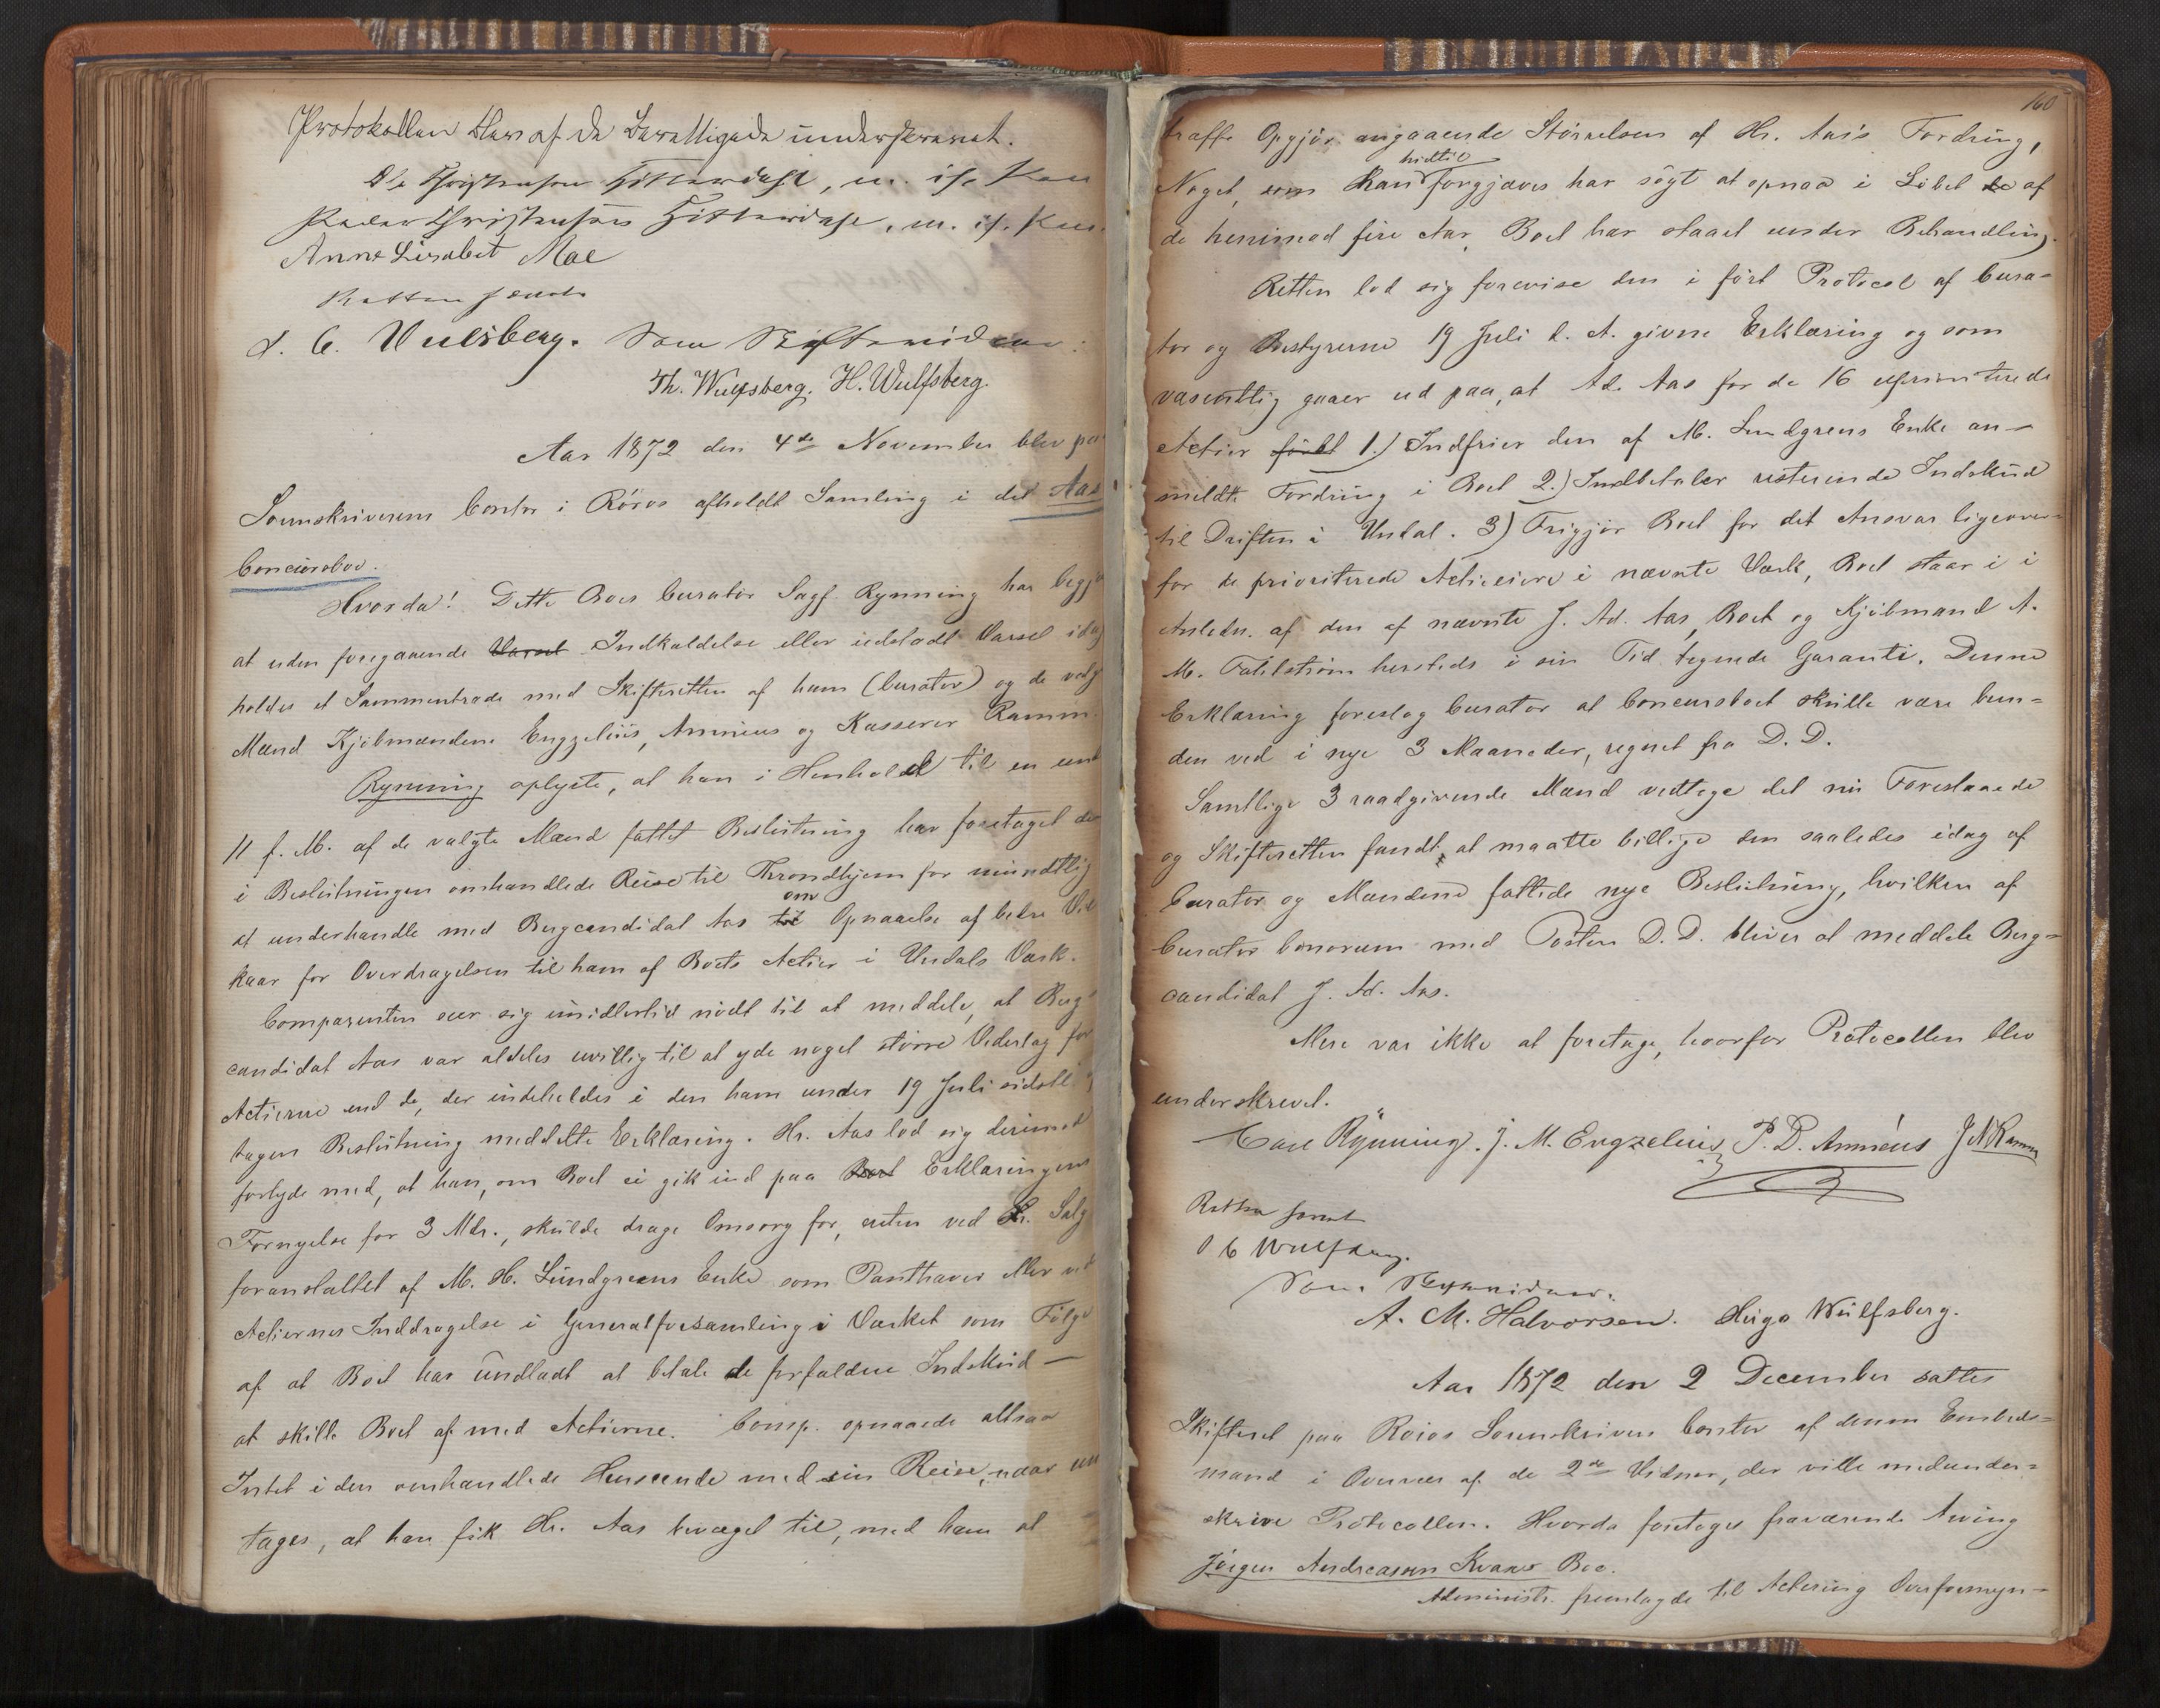 Protokollen blev af de Vedkommende underskrevet.
Ole Christensen Hitterdahl, m. i. P.
Peder Christensen Hitterdahl, m. i. P.
Anne Lisabet Moe
Retten hævet
O. C. Wulfsberg. Som Skiftevidner:
Th. Wulfsberg. H. Wulfsberg.
Aar 1872 den 4de November blev paa
Sorenskriverens Contor i Röros afholdt Samling i det Aas
Concursbo.
Hvorda! Dette Boes Curator Sagf. Rynning har begjæ
at uden foregaaende Varsel Indkaldelse eller udstædt Varsel idag
holdes et Sammentræde med Skifteretten af ham (Curator) og de valg
Mænd Kjöbmændene Engzelius, Amnéus og Kasserer Ramm.
Rynning oplyste, at han i Henhold til en und
11 f. M. af de valgte Mænd fattet Beslutning har foretaget den
i Beslutningen omhandlede Reise til Throndhjem for mundtlig
om
at underhandle med Bergcandidat Aas til Opnaaelse af bedre Vil
kaar for Overdragelsen til ham af Boets Actier i Undals Værk.
Comparenten seer sig imidlertid nödt til at meddele, at Berg-
candidat Aas var aldeles uvillig til at yde noget större Vederlag for
Actierne end de, der indeholdes i den ham under 19 Juli sidstl.
tagen Beslutning meddelte Erklæring. Hr. Aas lod sig derimod
forlyde med, at han, om Boet ei gik ind paa Boet Erklæringens
Fornyelse for 3 Mdr., skulde drage Omsorg for, enten ved Salg
foranstaltet af M. H. Lundgreens Enke som Panthaver eller ved
Actiernes Inddragelse i Generalforsamling i Værket som Fölge
af at Boet har undladt at betale de forfaldne Indskud —
at skille Boet af med Actierne. Comp. opnaaede altsaa
Intet i den omhandlede Henseende med sin Reise, naar un
tages, at han fik Hr. Aas bevæget til, med ham at
160
træffe Opgjör angaaende Störrelsen af Hr. Aas's Fordring,
hidtil
Noget, som han forgjæves har sögt at opnaa i Löbet de af
de henimod fire Aar, Boet har staaet under Behandling.
Retten lod sig forevise den i fört Protocol af Cura-
tor og Bestyrerne 19 Juli d. A. givne Erklæring og som
væsentlig gaaer ud paa, at Ad. Aas for de 16 uprioriterede
Actier först 1.) Indfrier den af M. Lundgrens Enke an-
meldte Fordring i Boet 2.) Indbetaler resterende Indskud
til Driften i Undal. 3) Frigjör Boet for det Ansvar ligeover-
for de prioriterede Actieeiere i nævnte Værk, Boet staar i i
Anledn. af den af nævnte J. Ad. Aas, Boet og Kjöbmand A.
M. Fahlström hersteds i sin Tid tegnede Garanti. Denne
Erklæring foreslog Curator at Concursboet skulle være bun-
den ved i nye 3 Maaneder, regnet fra D. D.
Samtlige 3 raadgivende Mænd vedtoge det nu Foreslaaede
og Skifteretten fandt, at maatte billige den saaledes idag af
Curator og Mændene fattede nye Beslutning, hvilken af
Curator bonorum med Posten D. D. bliver at meddele Berg-
candidat J. Ad. Aas.
Mere var ikke at foretage, hvorfor Protocollen blev
underskrevet.
Carl Rynning. J. M. Engzelius P. D. Amnéus J N Ramm
Retten hævet
O C Wulfsberg.
Som Skiftevidner.
A. M. Halvorsen. Hugo Wulfsberg.
Aar 1872 den 2 December sattes
Skifteret paa Röros Sorenskriver Contor af denne Embeds-
mand i Overvær af de 2de Vidner, der ville medunder-
skrive Protocollen. Hvorda foretoges fraværende Arving
Jörgen Andreasen Kvaas Boe.
Administr. fremlagde til Actering Overformyn-